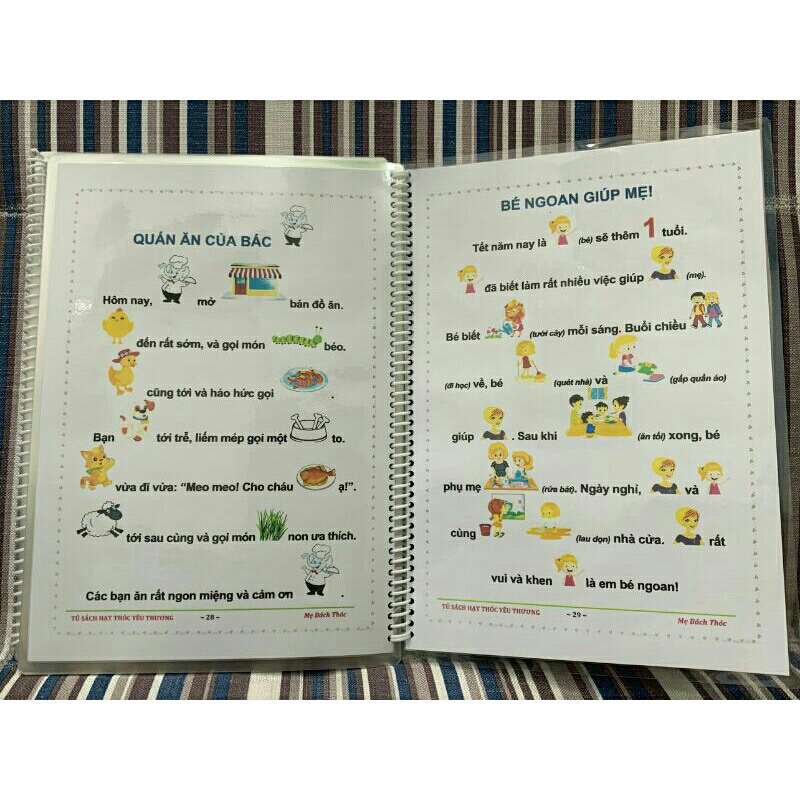 QUÁN ĂN CỦA BÁC
Hôm nay, mở bán đồ ăn.
đến rất sớm, và gọi món béo.
cũng tới và háo hức gọi .
Bạn tới trễ, liếm mép gọi một to.
vừa đi vừa: “Meo meo! Cho cháu ạ!”.
tới sau cùng và gọi món non ưa thích.
Các bạn ăn rất ngon miệng và cảm ơn .
TỦ SÁCH HẠT THÓC YÊU THƯƠNG ~ 28 ~ Mẹ Đách Thóc
BÉ NGOAN GIÚP MẸ!
Tết năm nay là (bé) sẽ thêm 1 tuổi.
đã biết làm rất nhiều việc giúp (mẹ).
Bé biết (tưới cây) mỗi sáng. Buổi chiều
(đi học) về, bé (quét nhà) và (gấp quần áo)
giúp . Sau khi (ăn tối) xong, bé
phụ mẹ (rửa bát). Ngày nghỉ, và
cùng (lau dọn) nhà cửa. rất
vui và khen là em bé ngoan!
TỦ SÁCH HẠT THÓC YÊU THƯƠNG ~ 29 ~ Mẹ Đách Thóc